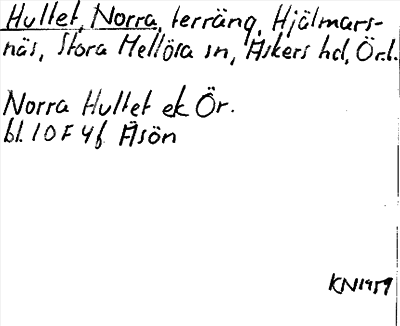 Hultet, Norra, terräng, Hjälmars-
näs, Stora Mellösa sn, Askers hd, Ör.l.
Norra Hultet ek Ör.
bl. 10 F 4f Äsön
KN 1959